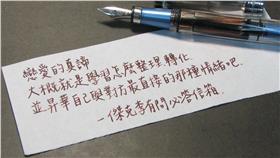 戀愛的真諦
大概就是學習怎麼整理、轉化
並昇華自己與對方最直接的那種情緒吧.
—傑克李有問必答信箱